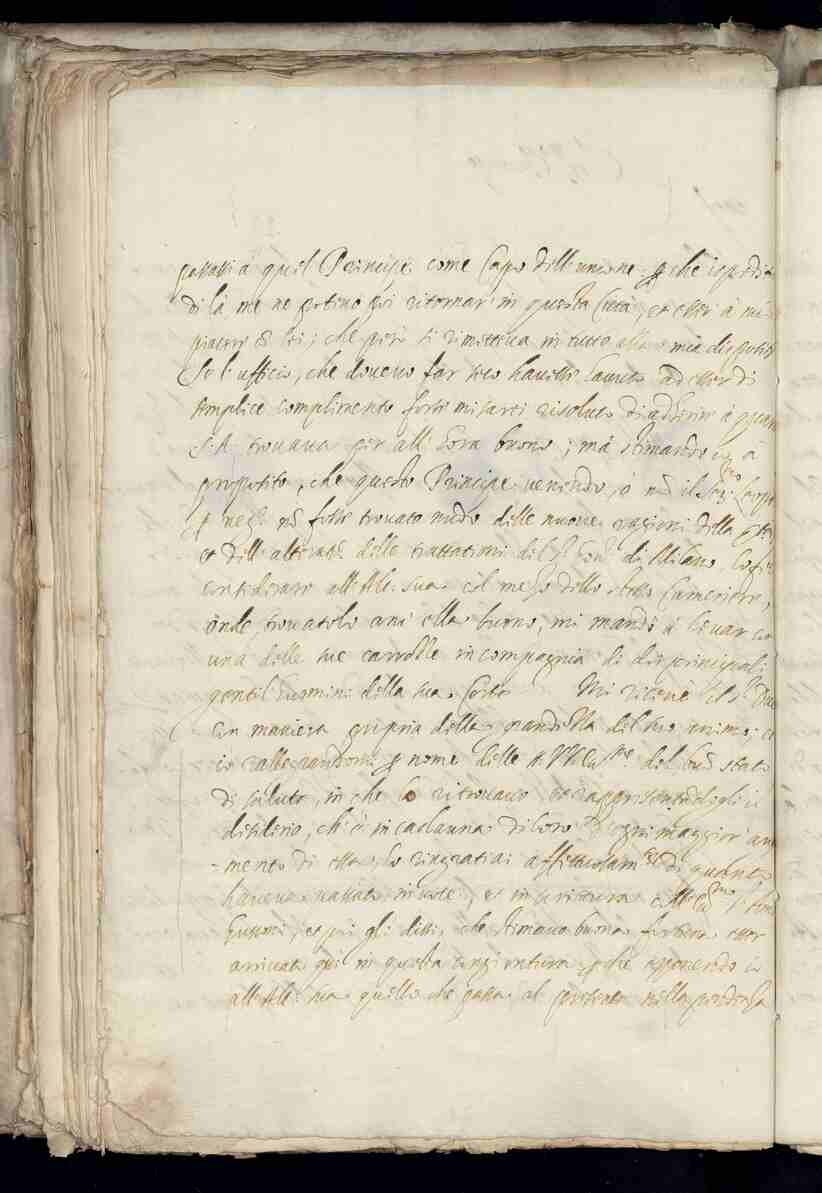 passassi à quel Principe come Capo dell'unione perche ispedito
di là me ne potevo poi ritornar in questa Città, et esser à mio
piacere con lei; che però si rimetteva in tutto alla mia disposit
Se l'ufficio, che dovevo far seco havesse havuto ad esser di
semplice complimento forse mi sarei risoluto di adherir à quan
S. A. trovava per all'hora buono; mà stimando io à
proposito, che questo Principe venendo, ò nò il
neg.o non fosse trovato nudo delle nuove ragioni della
et dell'alterat.ne delle trattationi del S.r Gov.r di Milano
considerare all'Alt. sua col mezo dello stesso Cameriere,
onde trovatolo anc'ella buono, mi mandò à levar con
una delle sue carrozze in compagnia di doi principali
gentil'huomini della sua Corte. Mi ricevè il S.r Duca
con maniera propria della grandezza del suo animo; et
io rallegrandomi per nome delle SS. VV. Ill.me del buon stato
di salute, in che lo ritrovavo et rappresentandogli il
desiderio, ch'è in cadauna di loro di ogni maggior au
-mento di essa, lo ringratiai affettuosam.te di quanto
haveva passato in voce, et in scrittura coll'Ecc.mo S.r
Gussoni, et poi gli dissi, che stimavo buona fortuna esser
arrivato qui in questa congiuntura, perche esponendo io
all'Alt. sua quello che passa al presente nella pendenza